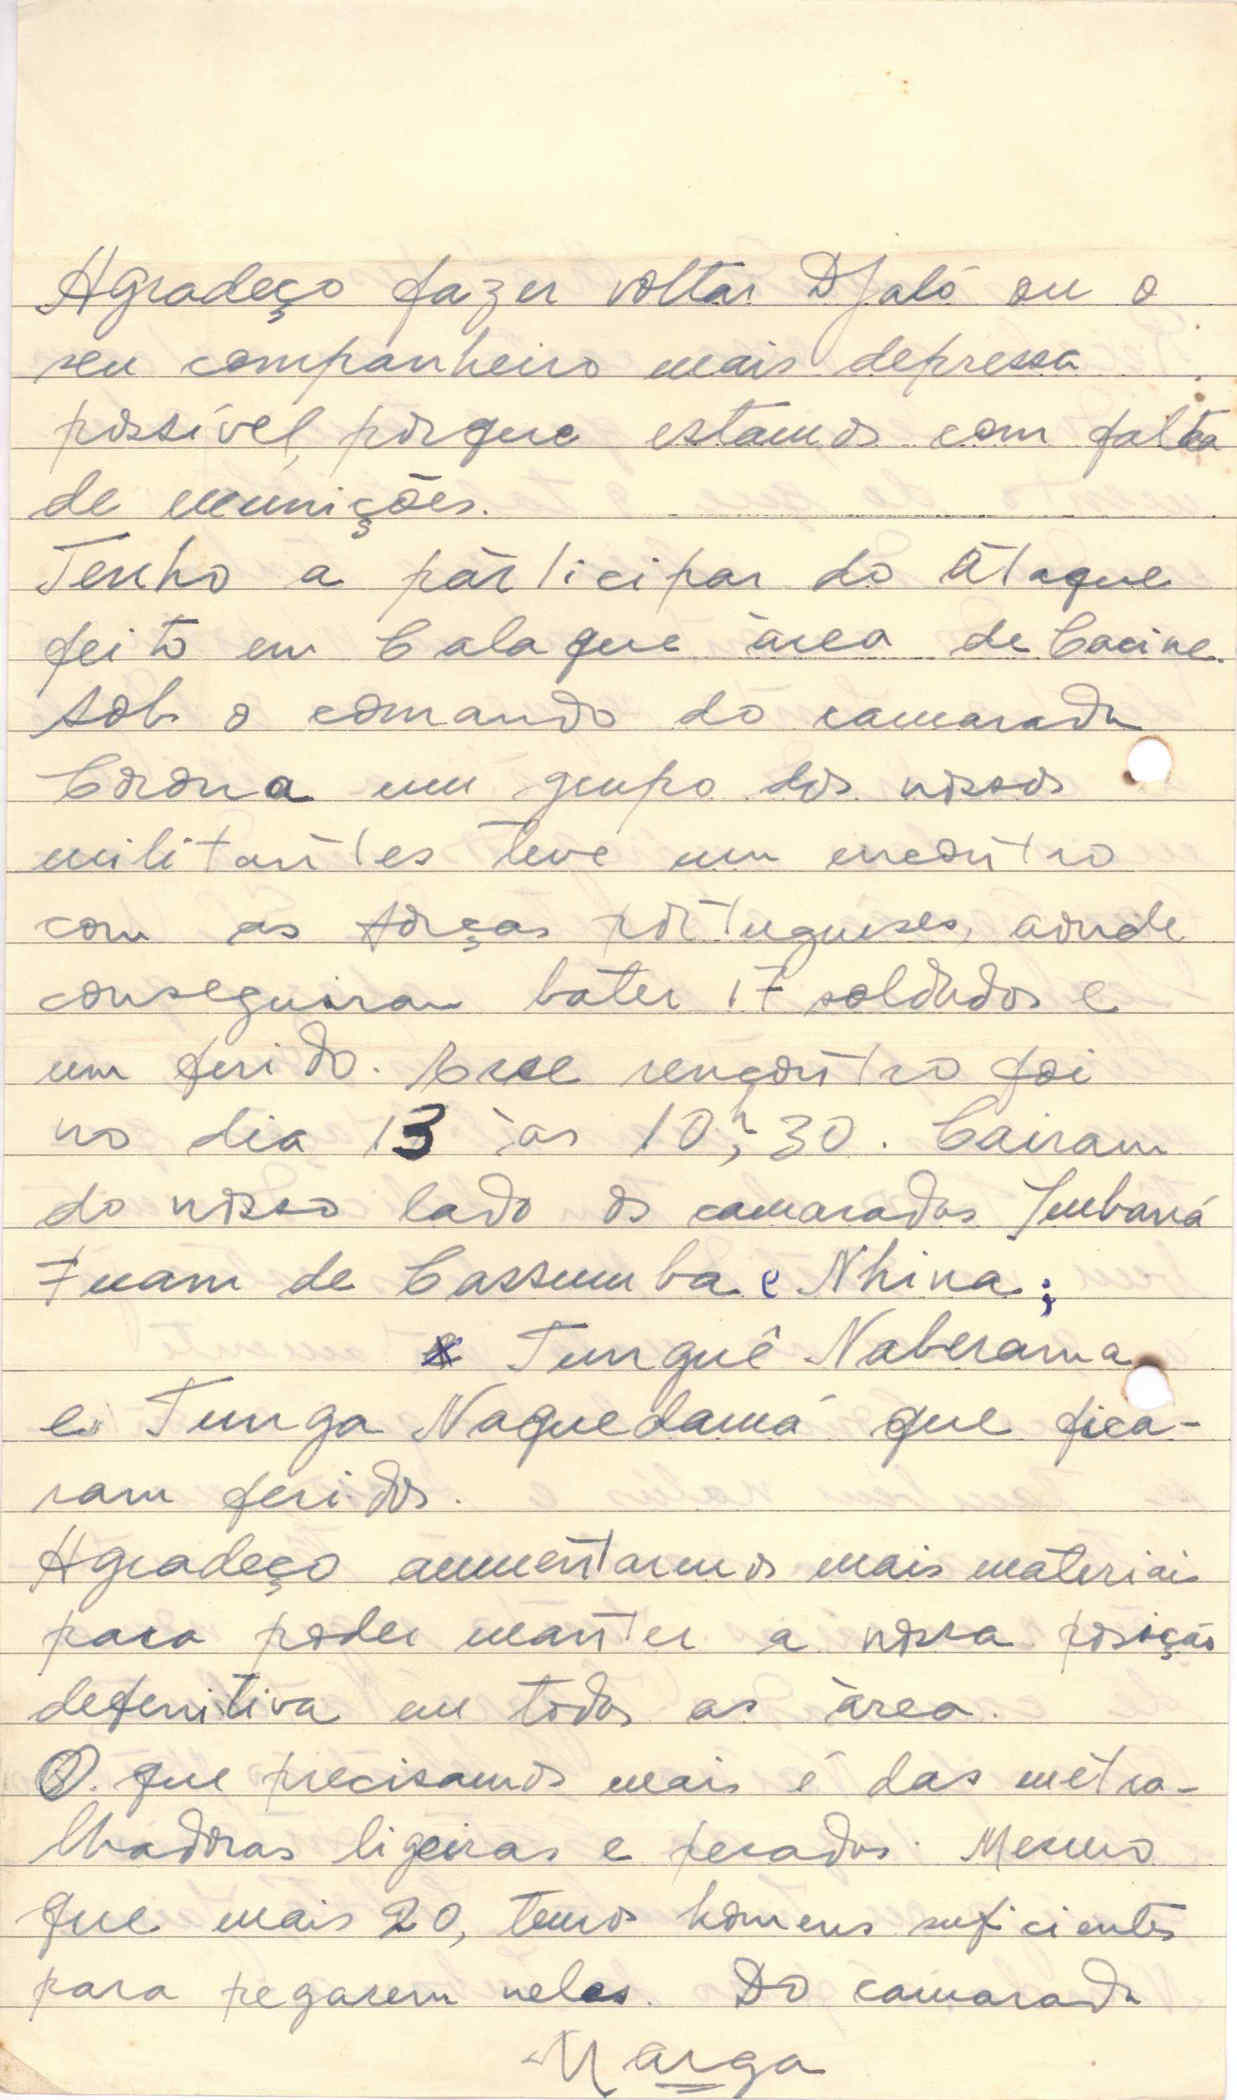 Agradeço fazer voltar Djaló ou o
seu companheiro mais depressa
possível, porque estamos com falta
de munições.
Tenho a participar do ataque
feito em Calaque área de Cacine.
Sob o comando do camarada
Corona um grupo dos nossos
militantes teve um encontro
com as forças portugueses, aonde
conseguiram bater 17 soldados e
um ferido. Esse rencontro foi
no dia 13 às 10h,30. Cairam
do nosso lado os camaradas Imbaná
Fuam de Cassumba e Nhina;
Tunguê Naberama
e Tunga Naquedamá que fica-
ram feridos.
Agradeço aumentarmos mais materiais
para poder manter a nossa posição
defenitiva em todas as área.
O que precisamos mais é das metra-
lhadoras ligeiras e pesadas. Mesmo
que mais 20, temos homens suficientes
para pegarem neles. Do camarada
Narga